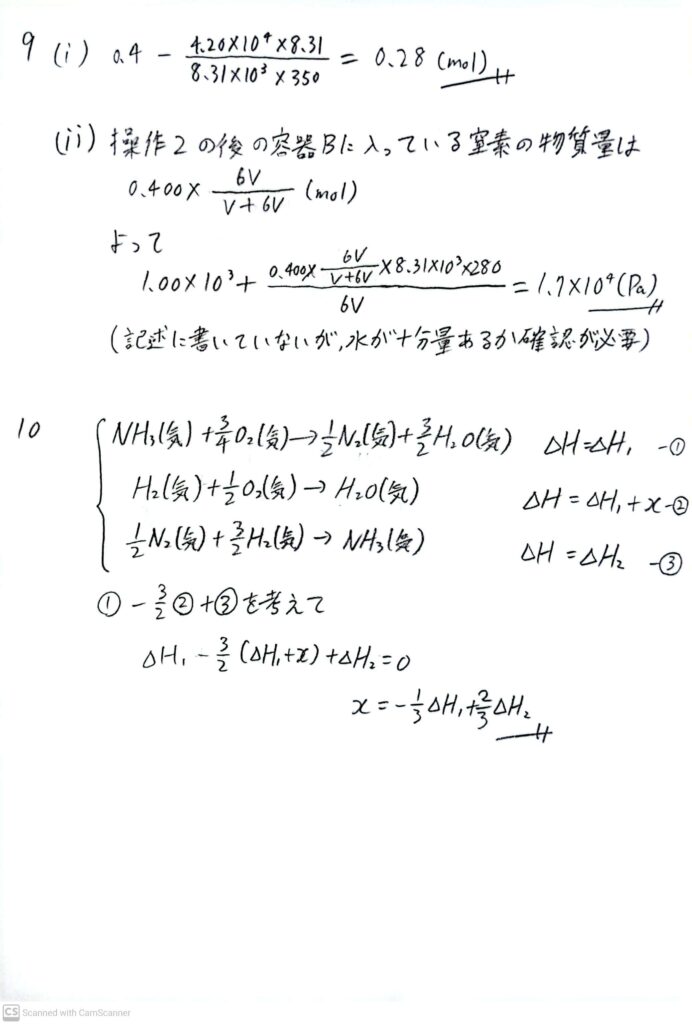 9 (i) 0.4 - 4.20×10⁴×8.31 / 8.31×10³×350 = 0.28 (mol)
(ii) 操作2の後の容器Bに入っている窒素の物質量は
0.400× 6V / V+6V (mol)
よって
1.00×10³ + 0.400× 6V / V+6V ×8.31×10³×280 / 6V = 1.7×10⁴(Pa)
(記述に書いていないが,水が十分量あるか確認が必要)
10 NH₃(気)+3/4O₂(気)→1/2N₂(気)+3/2H₂O(気) ΔH=ΔH₁ -①
H₂(気)+1/2O₂(気)→H₂O(気) ΔH=ΔH₁+x-②
1/2N₂(気)+3/2H₂(気)→NH₃(気) ΔH=ΔH₂ -③
①-3/2②+③を考えて
ΔH₁-3/2(ΔH₁+x)+ΔH₂=0
x=-1/3ΔH₁+2/3ΔH₂
CS Scanned with CamScanner